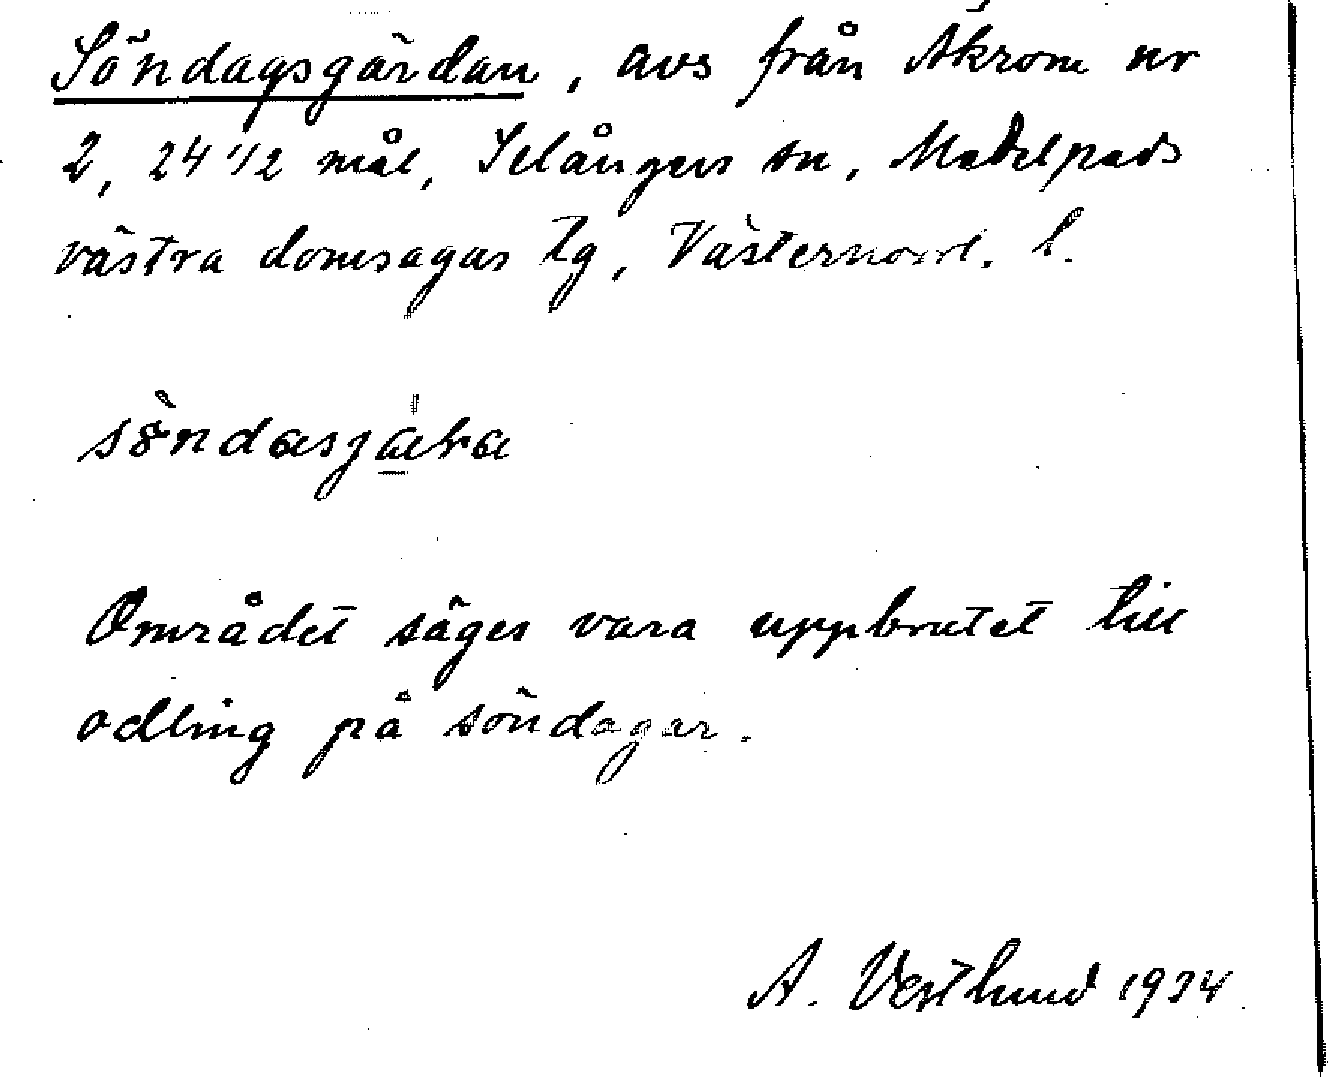 Söndagsgärdan, avs från Akrom nr
2, 24 1/2 mål, Selångers sn, Medelpads
västra domsagas tg, Västernorrl. l.
Området säges vara uppbrutet till
odling på söndagar.
A. Vestlund 1934